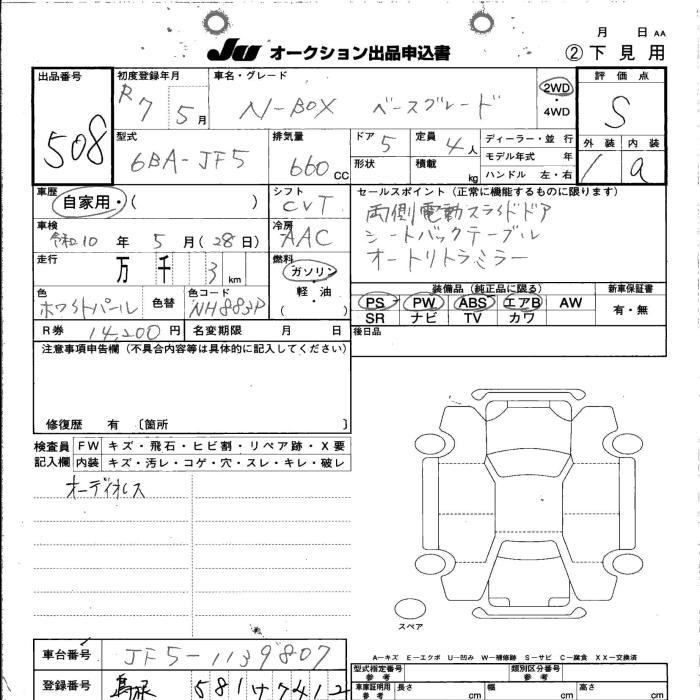 月 日 AA
JU オークション出品申込書 ②下見用
出品番号 508
初度登録年月 R7 5月
車名・グレード N-BOX ベースグレード
2WD・4WD
評価点 S
外装 1 内装 a
型式 6BA-JF5
排気量 660 CC
ドア 5
定員 4人
形状
積載 kg
ディーラー・並 行
モデル年式 年
ハンドル 左・右
車歴 自家用・( )
シフト CVT
セールスポイント(正常に機能するものに限ります)
両側電動スライドドア
シートバックテーブル
オートリトラミラー
車検 令和10年 5月(28日)
冷房 AAC
走行 万 千 3 km
燃料 ガソリン・軽油・( )
色 ホワイトパール
色替
色コード NH883P
装備品(純正品に限る)
PS PW ABS エアB AW
SR ナビ TV カワ
新車保証書
有・無
R券 14,200円
名変期限 月 日
後日品
注意事項申告欄(不具合内容等は具体的に記入してください)
修復歴 有 〔箇所 〕
検査員記入欄
FW キズ・飛石・ヒビ割・リペア跡・X要
内装 キズ・汚レ・コゲ・穴・スレ・キレ・破レ
オーディオレス
スペア
A-キズ E-エクボ U-凹み W-補修跡 S-サビ C-腐食 XX-交換済
車台番号 JF5-1139807
型式指定番号 参考
類別区分番号 参考
登録番号 581 4741
車庫証明用参考 長さ cm 幅 cm 高さ cm